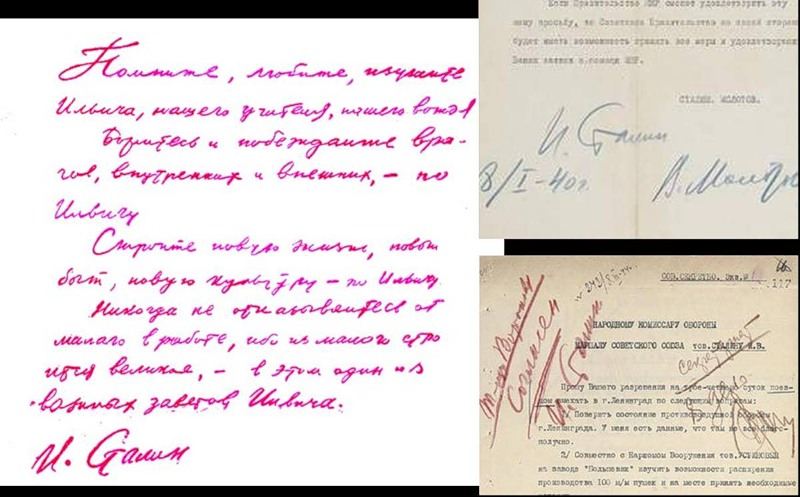 Помните, любите, изучайте
Ильича, нашего учителя, нашего вождя
Боритесь и побеждайте вра-
гов, внутренних и внешних, – по
Ильичу
Стройте новую жизнь, новый
быт, новую культуру – по Ильичу
Никогда не отказывайтесь от
малого в работе, ибо из малого стро
ится великое, – в этом один из
важных заветов Ильича.
И. Сталин
Если Правительство МНР сможет удовлетворить эту
нашу просьбу, то Советское Правительство
будет иметь возможность принять все меры к
Ваших заявок
СТАЛИН. МОЛОТОВ.
И. Сталин
8/I-40г.
В. Молотов
СОВ.СЕКРЕТНО. Экз.№
117
Согласен
И. Сталин
НАРОДНОМУ КОМИССАРУ ОБОРОНЫ
МАРШАЛУ СОВЕТСКОГО СОЮЗА тов.СТАЛИНУ И.В.
Прошу Вашего разрешения на трое-четверо суток поез-
дом выехать в г.Ленинград по следующим вопросам:
1/ Проверить состояние противовоздушной обороны
г.Ленинграда. У меня есть данные, что там не все благо-
получно.
2/ Совместно с Наркомом Вооружения тов.УСТИНОВЫМ
на заводе "Большевик" изучить возможности расширения
производства 100 м/м пушек и на месте принять необходимые